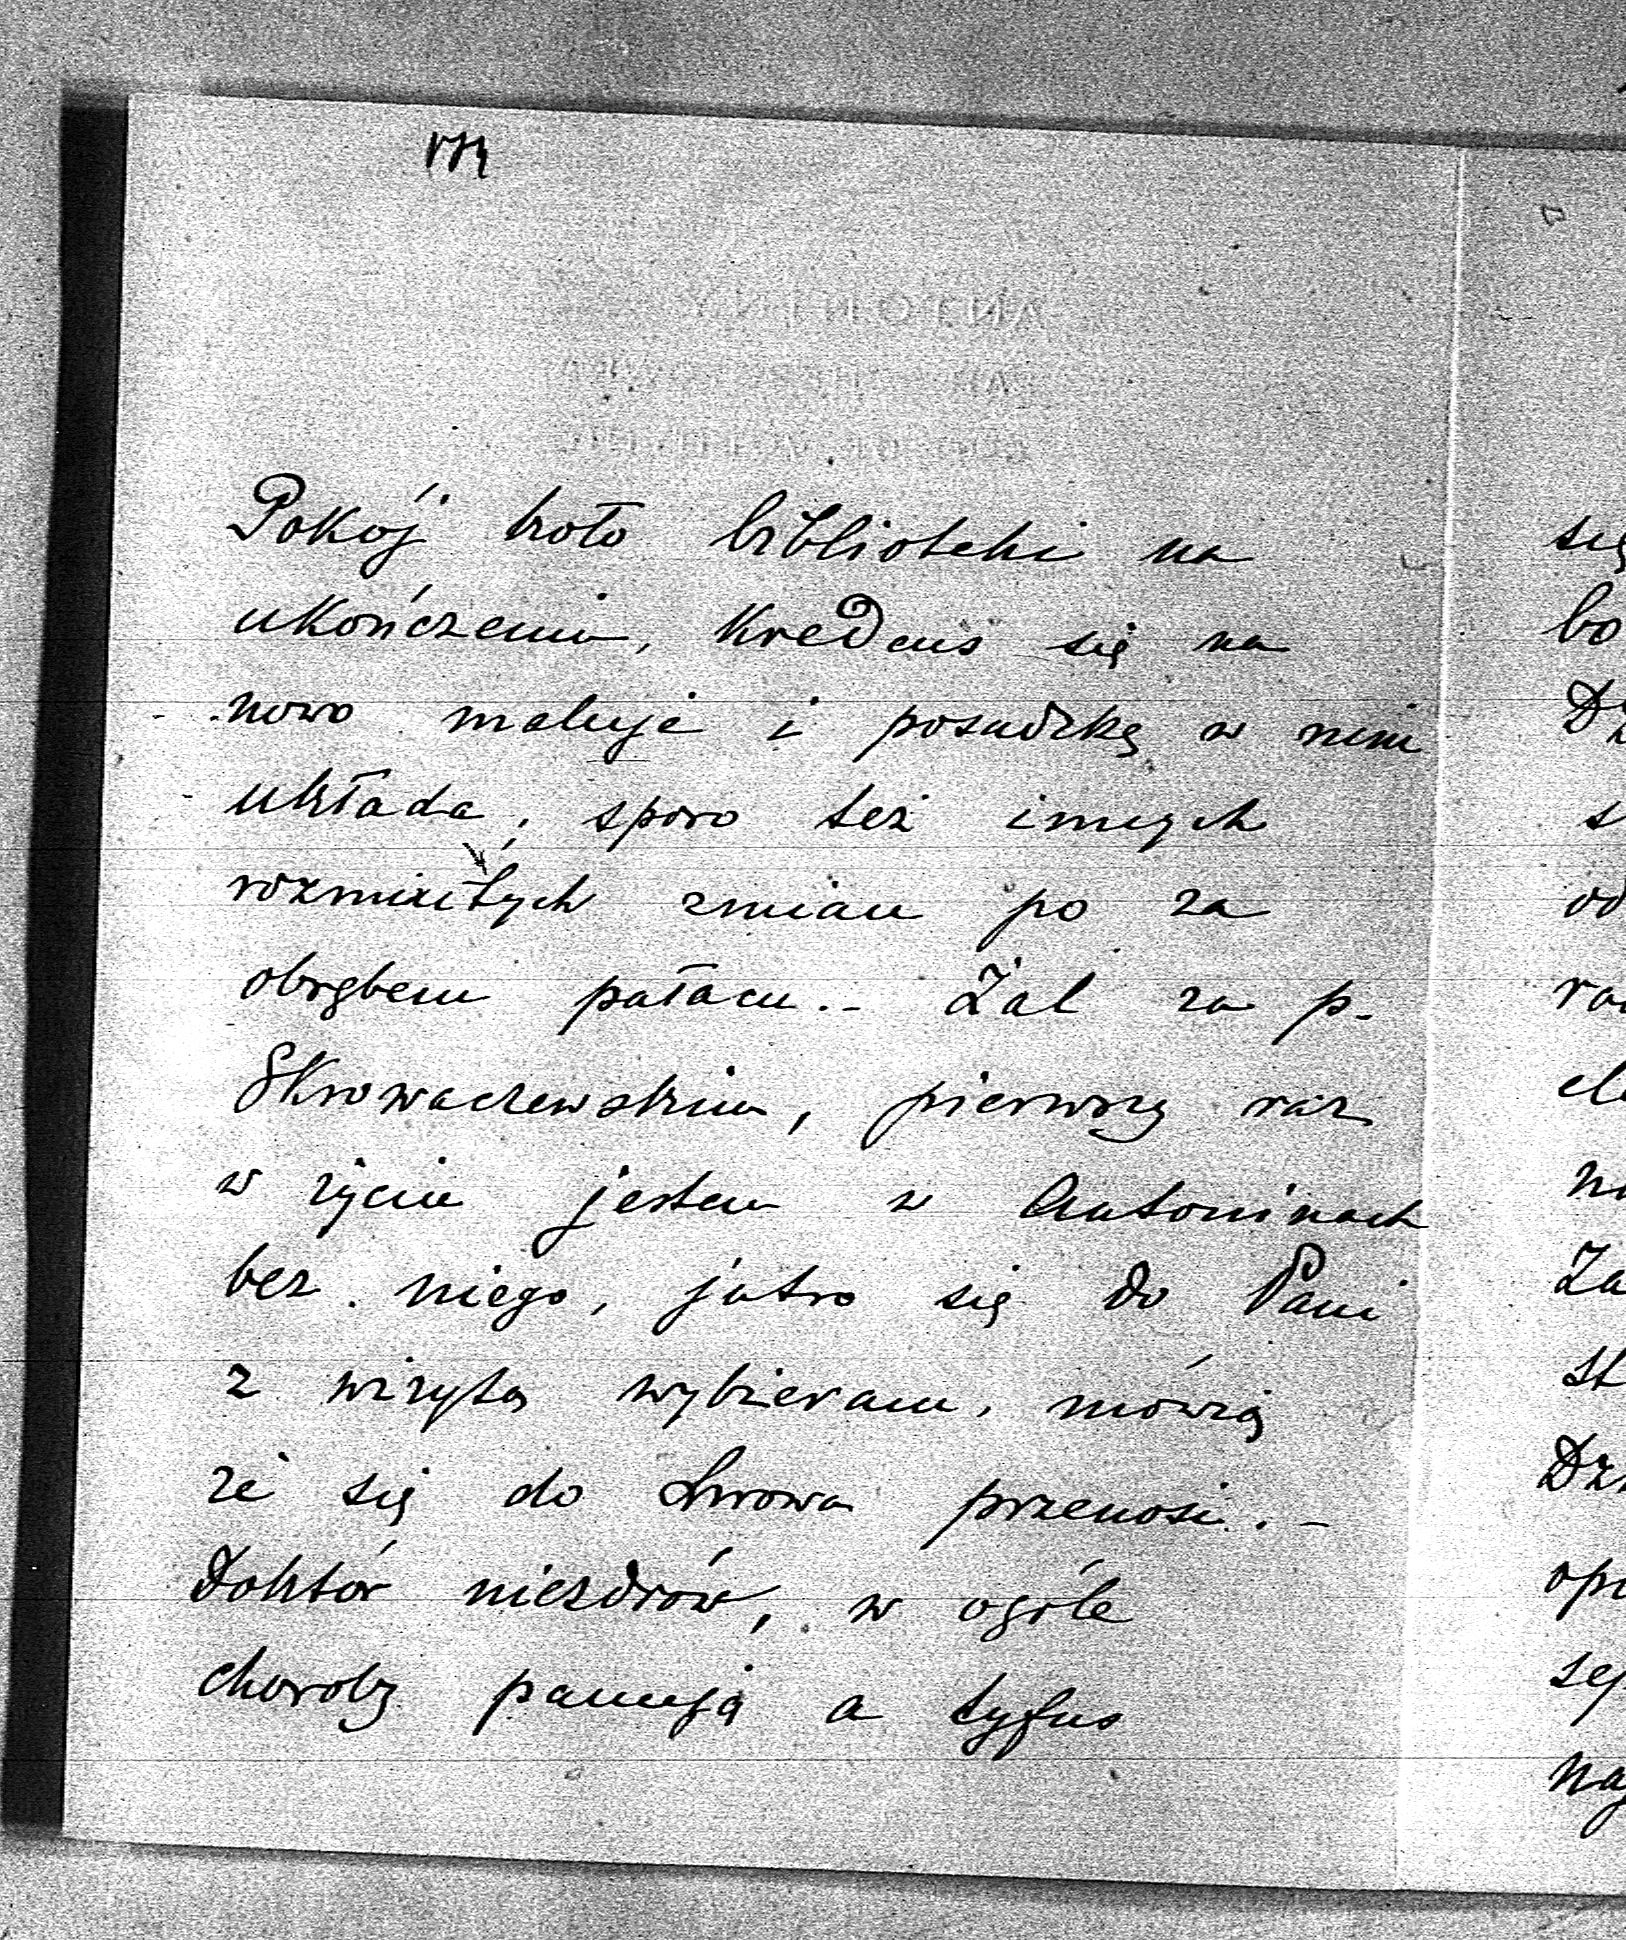 Pokój koło biblioteki na
ukończeniu, Kredens się na
nowo maluje i posadzkę w nim
układa, sporo też innych
rozmaitych zmian po za
obrębem pałacu. - Żal za p.
Skrowaczewskim, pierwszy raz
w życiu jestem w Antoninach
bez niego, jutro się do Pani
z wizytą wybieram, mówią
że się do Lwowa przenosi. -
Doktór niezdrów, w ogóle
choroby panują a tyfus